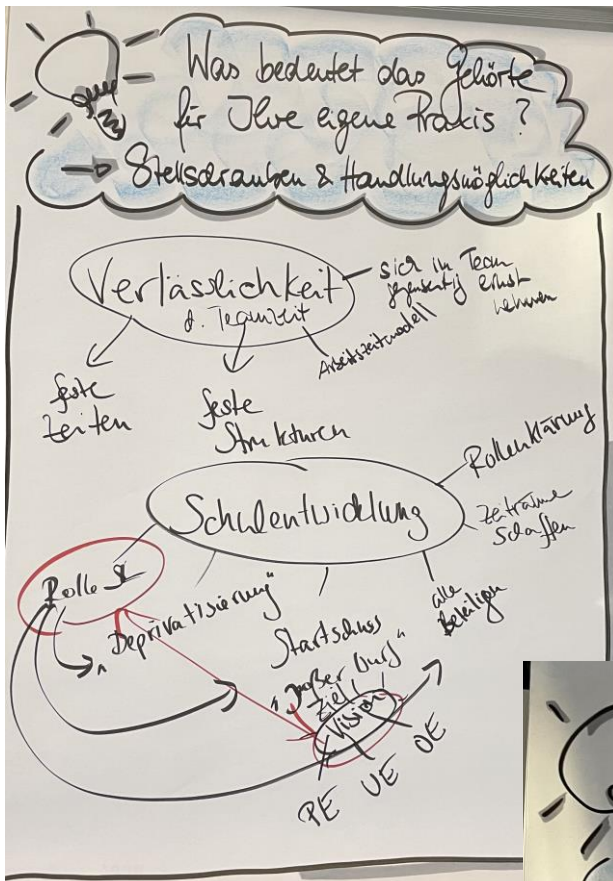 Was bedeutet das Gehörte
für Ihre eigene Praxis?
→ Stellschrauben & Handlungsmöglichkeiten
Verlässlichkeit
d. Teamzeit
sich im Team
gegenseitig ernst
nehmen
Arbeitszeitmodell
feste
Zeiten
feste
Strukturen
Schulentwicklung
Rollenklärung
Zeiträume
schaffen
alle
Beteiligen
Rolle
„Deprivatisierung"
Startschuss
„großer Wurf"
Ziel
Vision
PE UE OE